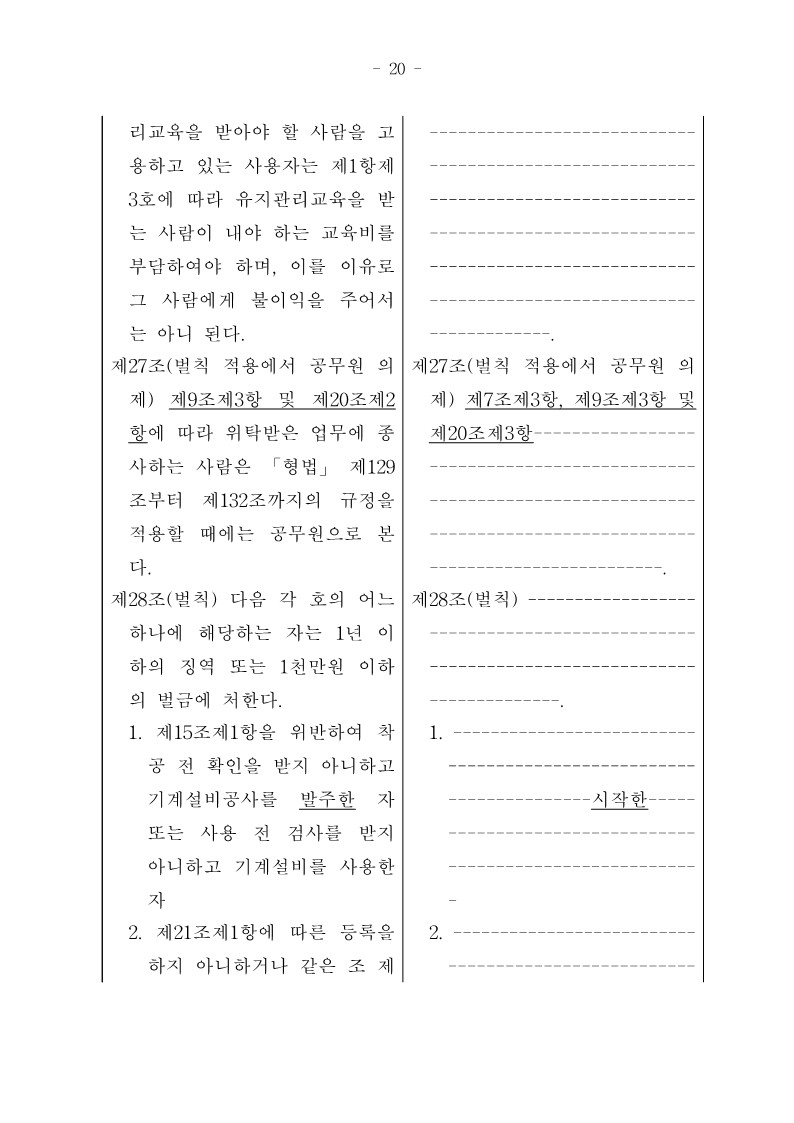 - 20 -
리교육을 받아야 할 사람을 고
용하고 있는 사용자는 제1항제
3호에 따라 유지관리교육을 받
는 사람이 내야 하는 교육비를
부담하여야 하며, 이를 이유로
그 사람에게 불이익을 주어서
는 아니 된다.
제27조(벌칙 적용에서 공무원 의
제) 제9조제3항 및 제20조제2
항에 따라 위탁받은 업무에 종
사하는 사람은 「형법」 제129
조부터 제132조까지의 규정을
적용할 때에는 공무원으로 본
다.
제28조(벌칙) 다음 각 호의 어느
하나에 해당하는 자는 1년 이
하의 징역 또는 1천만원 이하
의 벌금에 처한다.
1. 제15조제1항을 위반하여 착
공 전 확인을 받지 아니하고
기계설비공사를 발주한 자
또는 사용 전 검사를 받지
아니하고 기계설비를 사용한
자
2. 제21조제1항에 따른 등록을
하지 아니하거나 같은 조 제
----------------------------
----------------------------
----------------------------
----------------------------
----------------------------
----------------------------
-------------.
제27조(벌칙 적용에서 공무원 의
제) 제7조제3항, 제9조제3항 및
제20조제3항-----------------
----------------------------
----------------------------
----------------------------
-------------------------.
제28조(벌칙) ------------------
----------------------------
----------------------------
--------------.
1. --------------------------
--------------------------
---------------시작한-----
--------------------------
--------------------------
-
2. --------------------------
--------------------------